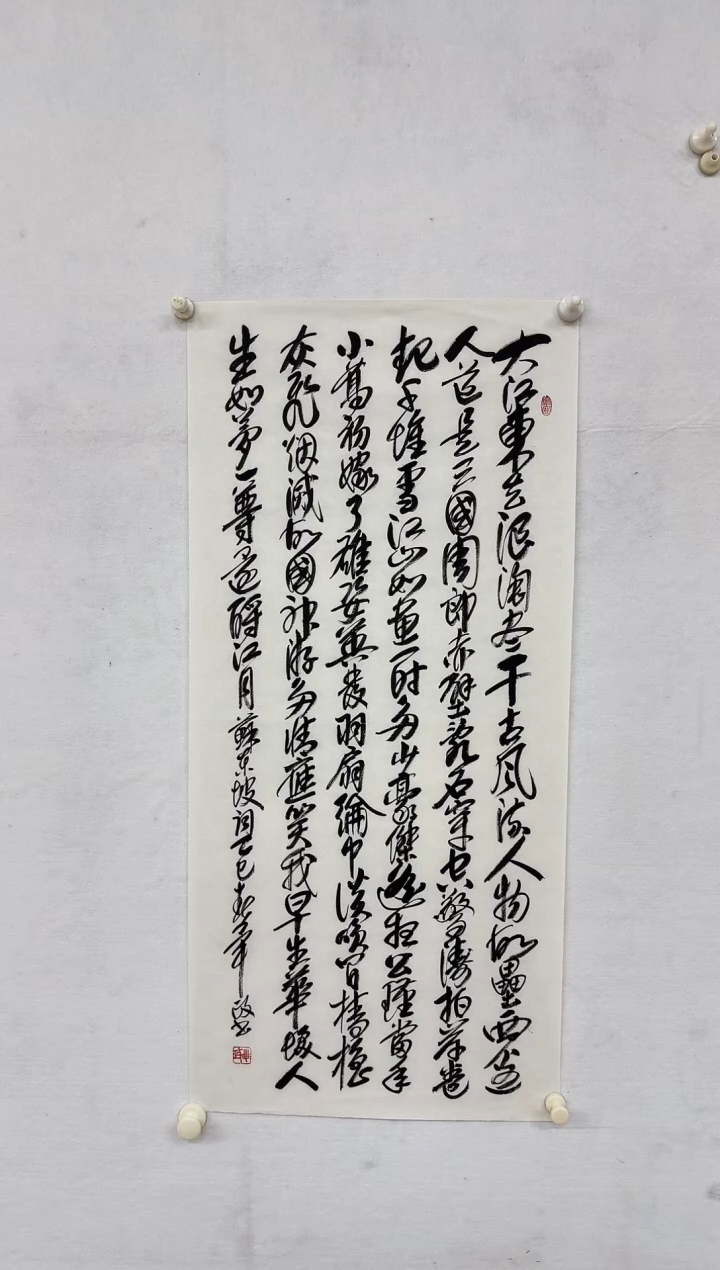 大江東去浪淘尽千古風流人物故壘西邊
人道是三國周郎赤壁亂石穿空驚濤拍岸卷
起千堆雪江山如畫一時多少豪傑遙想公瑾當年
小喬初嫁了雄姿英發羽扇綸巾談笑間檣櫓
灰飛烟滅故國神游多情應笑我早生華髮人
生如夢一尊還酹江月蘇東坡詞乙巳春